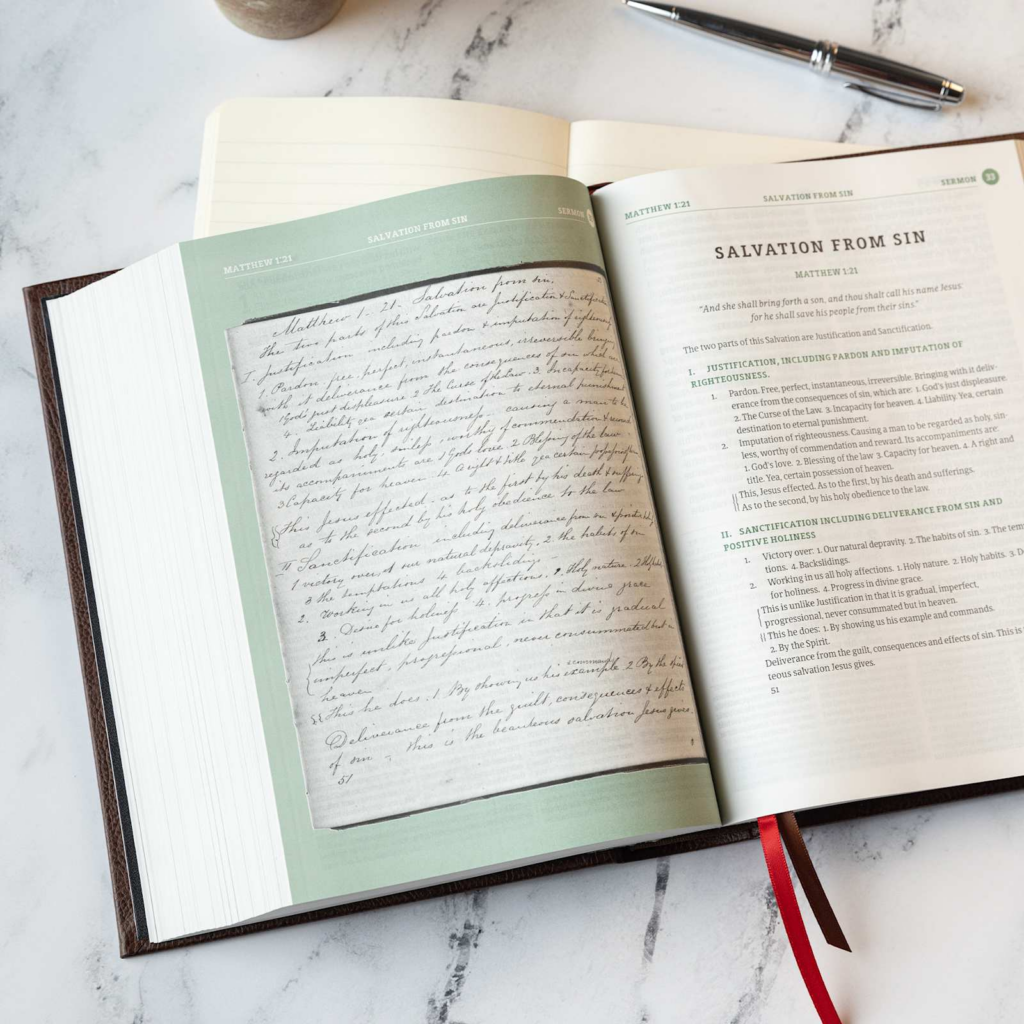 MATTHEW 1:21 SALVATION FROM SIN SERMON
Matthew 1 - 21 - Salvation from sin.
The two parts of this Salvation are Justification & Sanctification
I. Justification including pardon & imputation of righteousness
1. Pardon free, perfect, instantaneous, irreversible bringing
with it deliverance from the consequences of sin which are
1 God's just displeasure 2 The Curse of the Law. 3. Incapacity for heaven
4. Liability yea certain destination to eternal punishment
2. Imputation of righteousness. causing a man to be
regarded as holy, sinless, worthy of commendation & reward
its accompaniments are 1 Gods love. 2. Blessing of the law
3 Capacity for heaven. 4. A right & title yea certain possession
This Jesus effected. as to the first by his death & sufferings
as to the second by his holy obedience to the law
II Sanctification including deliverance from sin & positive holi
1 victory over 1 our natural depravity. 2. the habits of sin
3 the temptations 4. backslidings
2. Working in us all holy affections. 1. Holy nature. 2 Holy habits
3. Desire for holiness 4. progress in divine grace
this is unlike Justification in that it is gradual
imperfect, progressional, never consummated but in
heaven
commands
This he does. 1 By showing us his example. 2 By the Spirit
Deliverance from the guilt, consequences & effects
of sin, this is the beauteous salvation Jesus gives.
51
MATTHEW 1:21 SALVATION FROM SIN SERMON 33
SALVATION FROM SIN
MATTHEW 1:21
"And she shall bring forth a son, and thou shalt call his name Jesus:
for he shall save his people from their sins."
The two parts of this Salvation are Justification and Sanctification.
I. JUSTIFICATION, INCLUDING PARDON AND IMPUTATION OF
RIGHTEOUSNESS.
1. Pardon. Free, perfect, instantaneous, irreversible. Bringing with it deliv-
erance from the consequences of sin, which are: 1. God's just displeasure.
2. The Curse of the Law. 3. Incapacity for heaven. 4. Liability Yea, certain
destination to eternal punishment.
2. Imputation of righteousness. Causing a man to be regarded as holy, sin-
less, worthy of commendation and reward. Its accompaniments are:
1. God's love. 2. Blessing of the law 3. Capacity for heaven. 4. A right and
title. Yea, certain possession of heaven.
This, Jesus effected. As to the first, by his death and sufferings.
As to the second, by his holy obedience to the law.
II. SANCTIFICATION INCLUDING DELIVERANCE FROM SIN AND
POSITIVE HOLINESS
1. Victory over: 1. Our natural depravity. 2. The habits of sin. 3. The tem
tions. 4. Backslidings.
2. Working in us all holy affections. 1. Holy nature. 2. Holy habits. 3. De
for holiness. 4. Progress in divine grace.
This is unlike Justification in that it is gradual, imperfect,
progressional, never consummated but in heaven.
This he does: 1. By showing us his example and commands.
2. By the Spirit.
Deliverance from the guilt, consequences and effects of sin. This is
teous salvation Jesus gives.
51